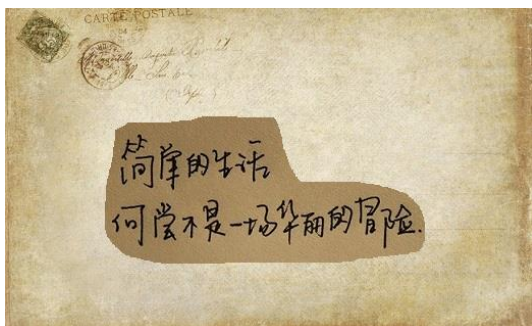 CARTE POSTALE
简单的生活
何尝不是一场华丽的冒险.